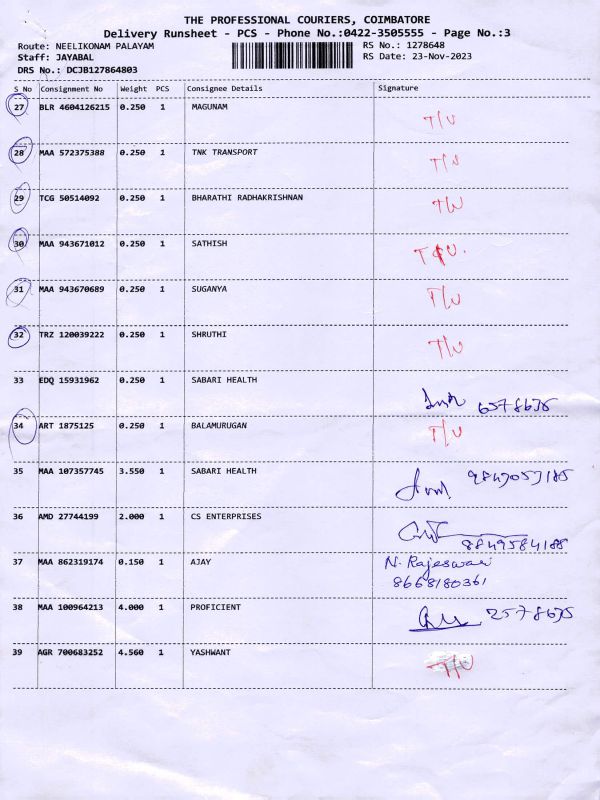 THE PROFESSIONAL COURIERS, COIMBATORE
Delivery Runsheet - PCS - Phone No.:0422-3505555 - Page No.:3
Route: NEELIKONAM PALAYAM RS No.: 1278648
Staff: JAYABAL RS Date: 23-Nov-2023
DRS No.: DCJB127864803
S No Consignment No Weight PCS Consignee Details Signature
27 BLR 4604126215 0.250 1 MAGUNAM T/U
28 MAA 572375388 0.250 1 TNK TRANSPORT T/U
29 TCG 50514092 0.250 1 BHARATHI RADHAKRISHNAN T/U
30 MAA 943671012 0.250 1 SATHISH T/U.
31 MAA 943670689 0.250 1 SUGANYA T/U
32 TRZ 120039222 0.250 1 SHRUTHI T/U
33 EDQ 15931962 0.250 1 SABARI HEALTH
34 ART 1875125 0.250 1 BALAMURUGAN T/U
35 MAA 107357745 3.550 1 SABARI HEALTH
36 AMD 27744199 2.000 1 CS ENTERPRISES 8849584188
37 MAA 862319174 0.150 1 AJAY N. Rajeswari
8668180361
38 MAA 100964213 4.000 1 PROFICIENT
39 AGR 700683252 4.560 1 YASHWANT T/U